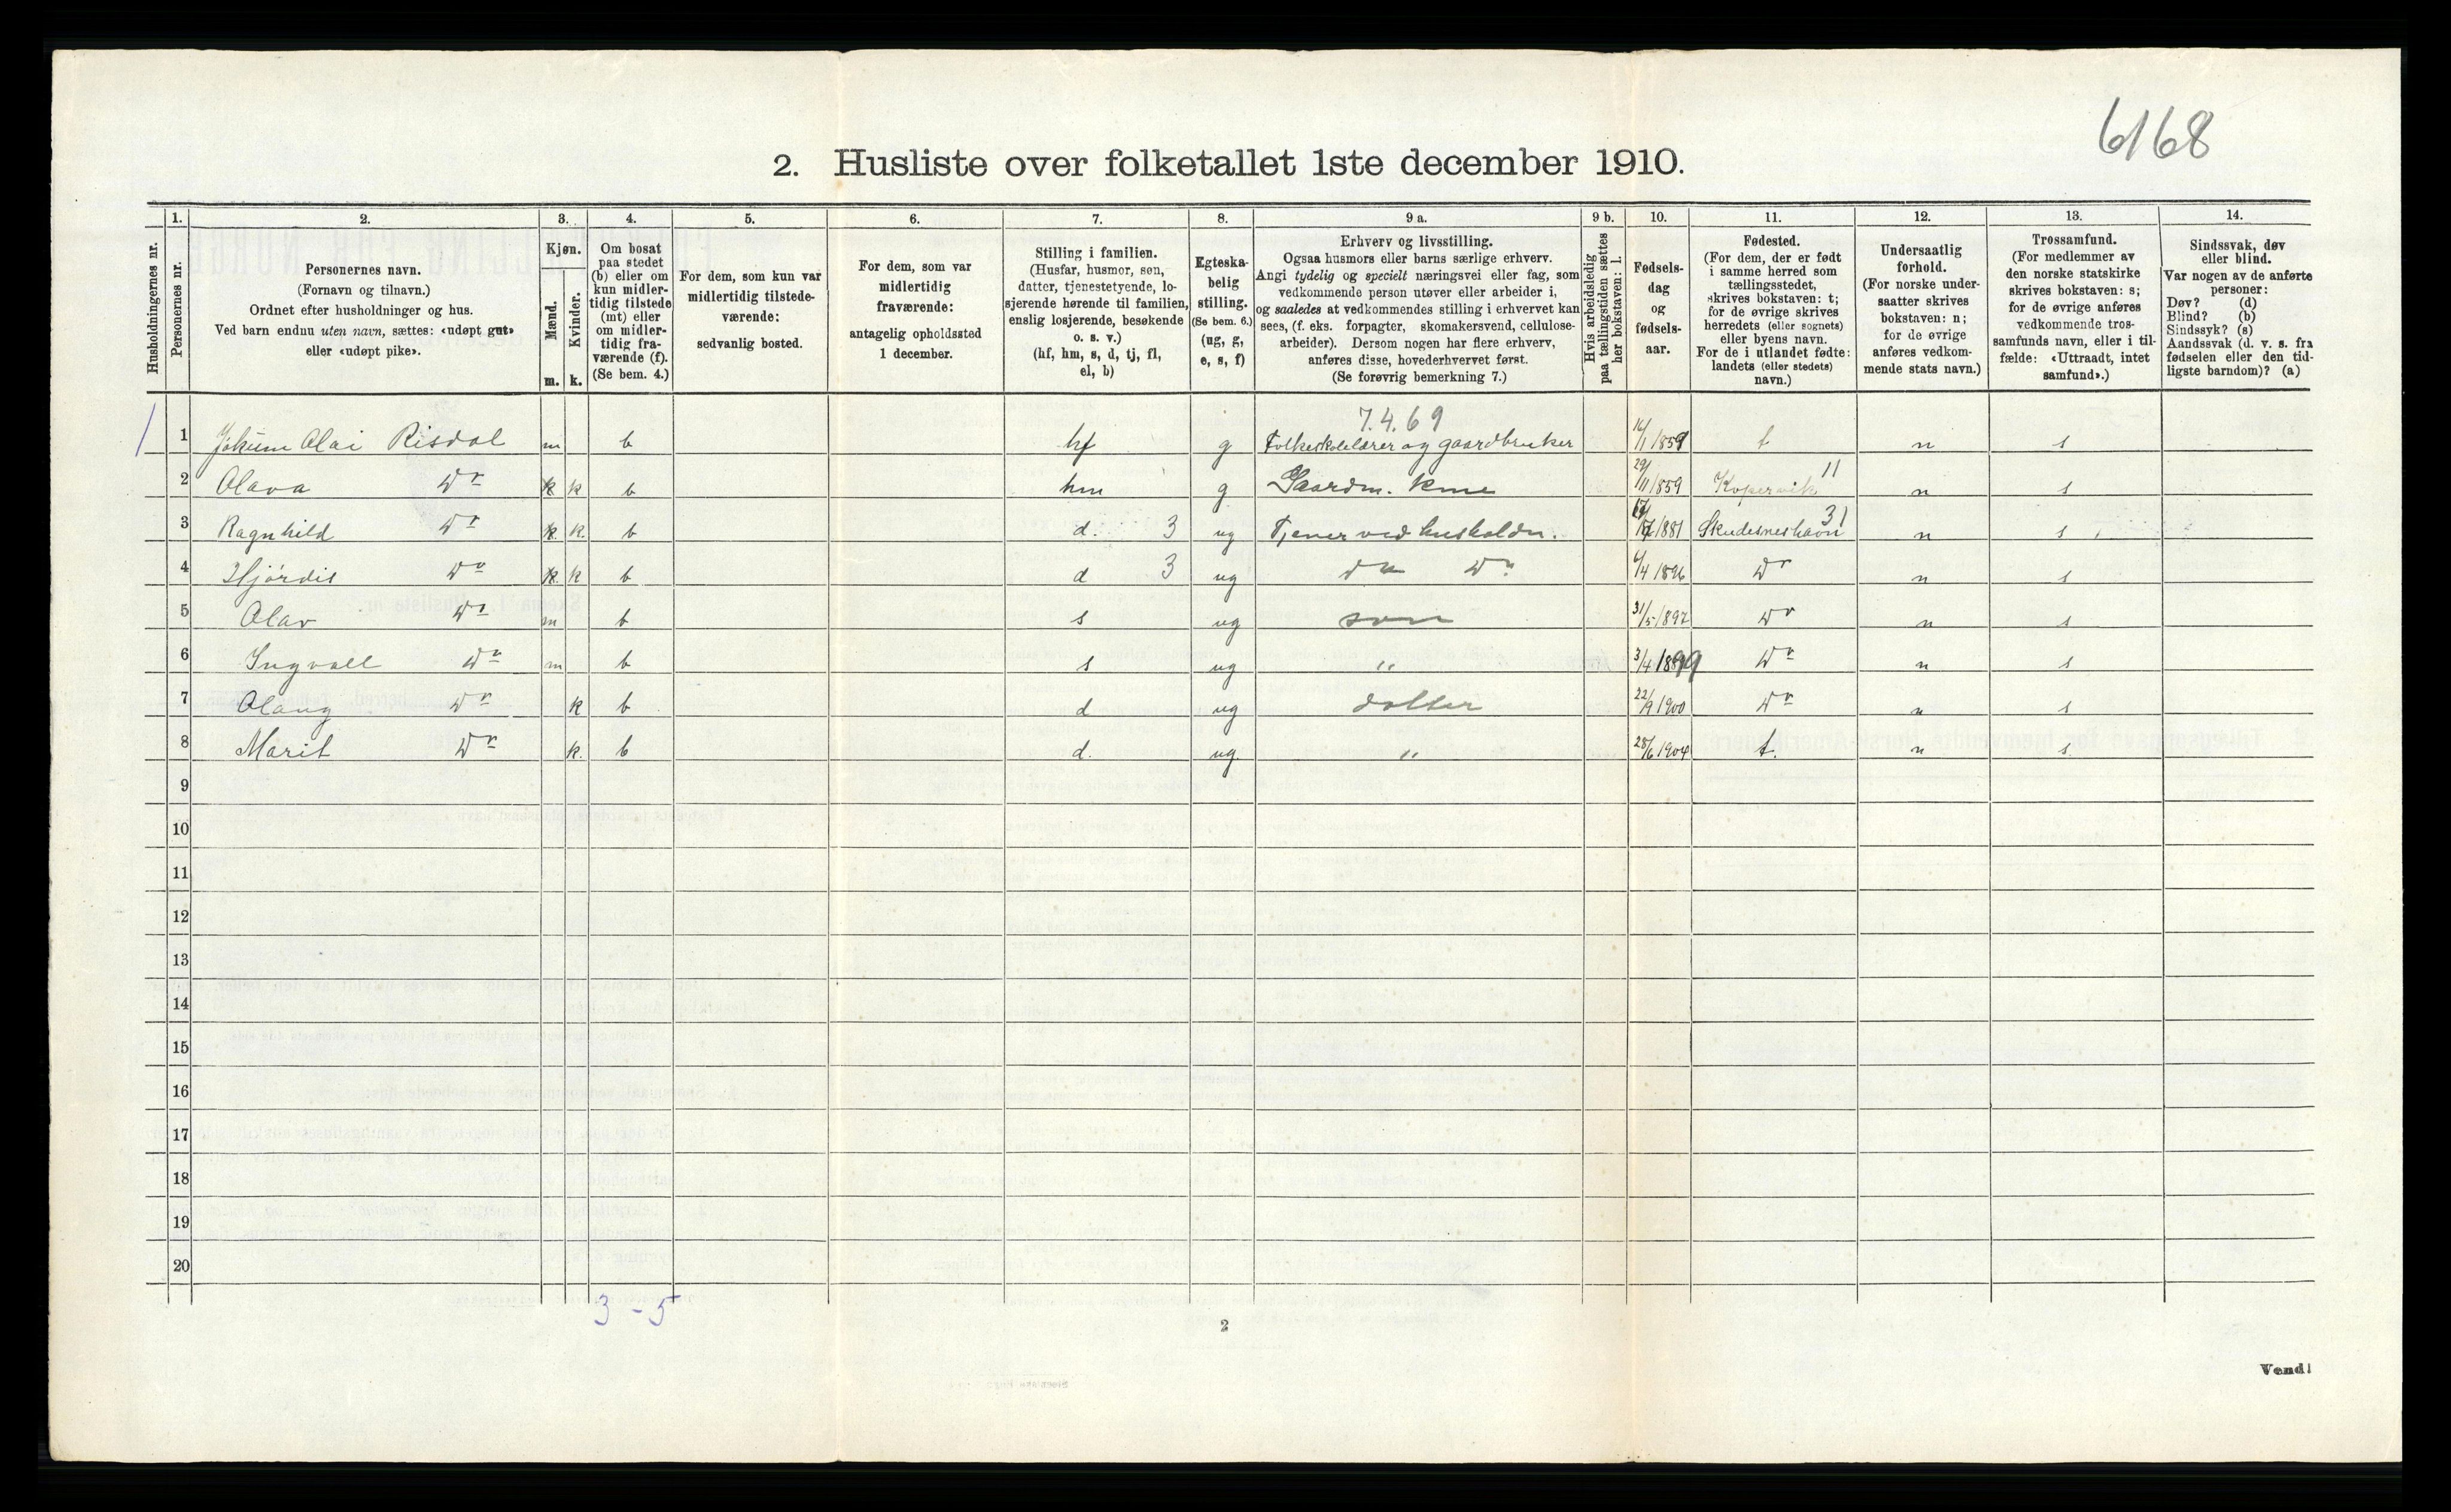 6168
2. Husliste over folketallet 1ste december 1910.
Husholdningernes nr.
1. Personernes nr.
2. Personernes navn. (Fornavn og tilnavn.) Ordnet efter husholdninger og hus. Ved barn endnu uten navn, sættes: «udøpt gut» eller «udøpt pike».
3. Kjøn. Mænd. m. Kvinder. k.
4. Om bosat paa stedet (b) eller om kun midlertidig tilstede (mt) eller om midlertidig fraværende (f). (Se bem. 4.)
5. For dem, som kun var midlertidig tilstedeværende: sedvanlig bosted.
6. For dem, som var midlertidig fraværende: antagelig opholdssted 1 december.
7. Stilling i familien. (Husfar, husmor, søn, datter, tjenestetyende, losjerende hørende til familien, enslig losjerende, besøkende o. s. v.) (hf, hm, s, d, tj, fl, el, b)
8. Egteskabelig stilling. (Se bem. 6.) (ug, g, e, s, f)
9 a. Erhverv og livsstilling. Ogsaa husmors eller barns særlige erhverv. Angi tydelig og specielt næringsvei eller fag, som vedkommende person utøver eller arbeider i, og saaledes at vedkommendes stilling i erhvervet kan sees, (f. eks. forpagter, skomakersvend, cellulosearbeider). Dersom nogen har flere erhverv, anføres disse, hovederhvervet først. (Se forøvrig bemerkning 7.)
9 b. Hvis arbeidsledig paa tællingstiden sættes her bokstaven: l.
10. Fødselsdag og fødselsaar.
11. Fødested. (For dem, der er født i samme herred som tællingsstedet, skrives bokstaven: t; for de øvrige skrives herredets (eller sognets) eller byens navn. For de i utlandet fødte: landets (eller stedets) navn.)
12. Undersaatlig forhold. (For norske undersaatter skrives bokstaven: n; for de øvrige anføres vedkommende stats navn.)
13. Trossamfund. (For medlemmer av den norske statskirke skrives bokstaven: s; for de øvrige anføres vedkommende trossamfunds navn, eller i tilfælde: «Uttraadt, intet samfund».)
14. Sindssvak, døv eller blind. Var nogen av de anførte personer: Døv? (d) Blind? (b) Sindssyk? (s) Aandssvak (d. v. s. fra fødselen eller den tidligste barndom)? (a)
7.4.69
1 1 Jokum Olai Risdal m b hf g Folkeskolelærer og gaardbruker 16/1 1859 t n s
11
2 Olava Do k k b hm g Gaardm. kone 29/11 1859 Kopervik n s
31
3 Ragnhild Do k k. b d. 3 ug Tjener ved husholdn. 1881 Skudesneshavn n s
4 Hjördis Do k k b d 3 ug do Do 4/4 1896 Do n s
5 Olav Do m b s ug søn 31/5 1897 Do n s
6 Ingvall Do m b s ug " 3/4 1899 Do n s
7 Olaug Do k b d ug dotter 22/9 1900 Do n s
8 Marit Do k. b d. ug. " 28/6 1904 t. n s.
9
10
11
12
13
14
15
16
17
18
19
20
3 - 5
2
Vend!